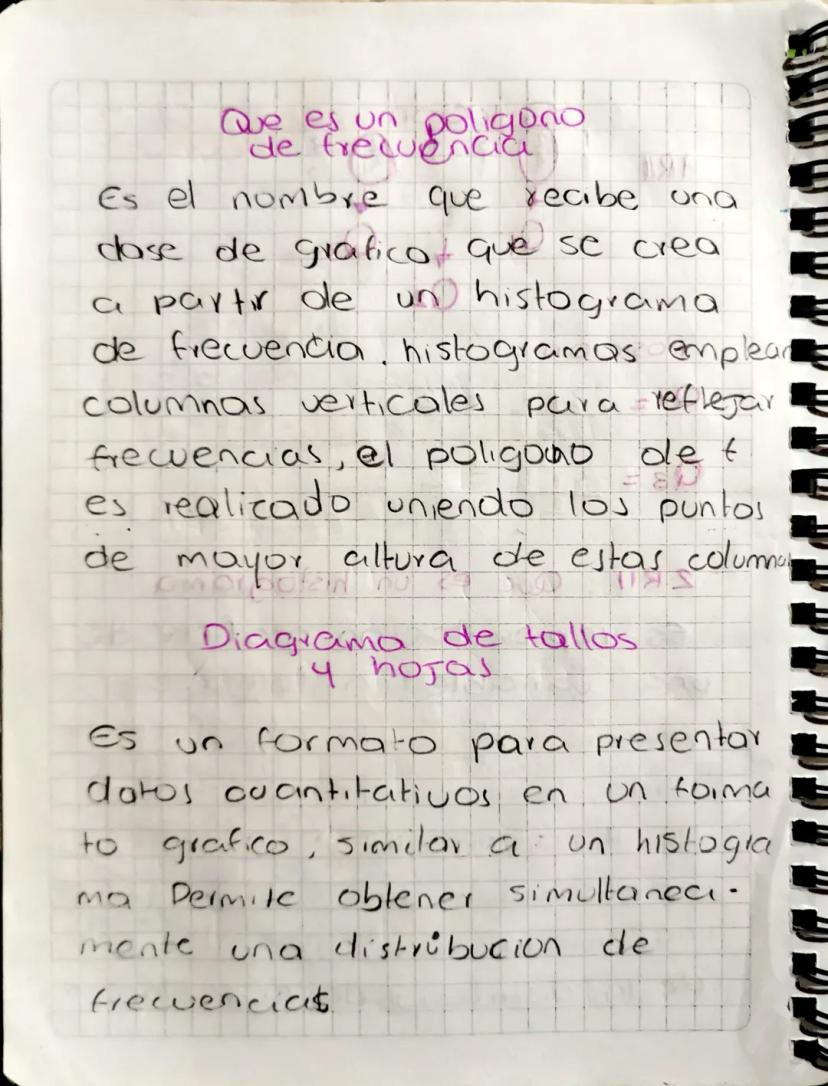 Que es un poligono
de frecuencia
Es el nombre que recibe una
clase de grafico, que se crea
a partir de un histograma
de frecuencia. histogramas emplean
columnas verticales para reflejar
frecuencias, el poligono de f
es realizado uniendo los puntos
de mayor altura de estas columnas
Diagrama de tallos
y hojas
Es un formato para presentar
datos cuantitativos en un forma
to grafico, similar a un histogra
ma Permite obtener simultanea-
mente una distribucion de
frecuencias